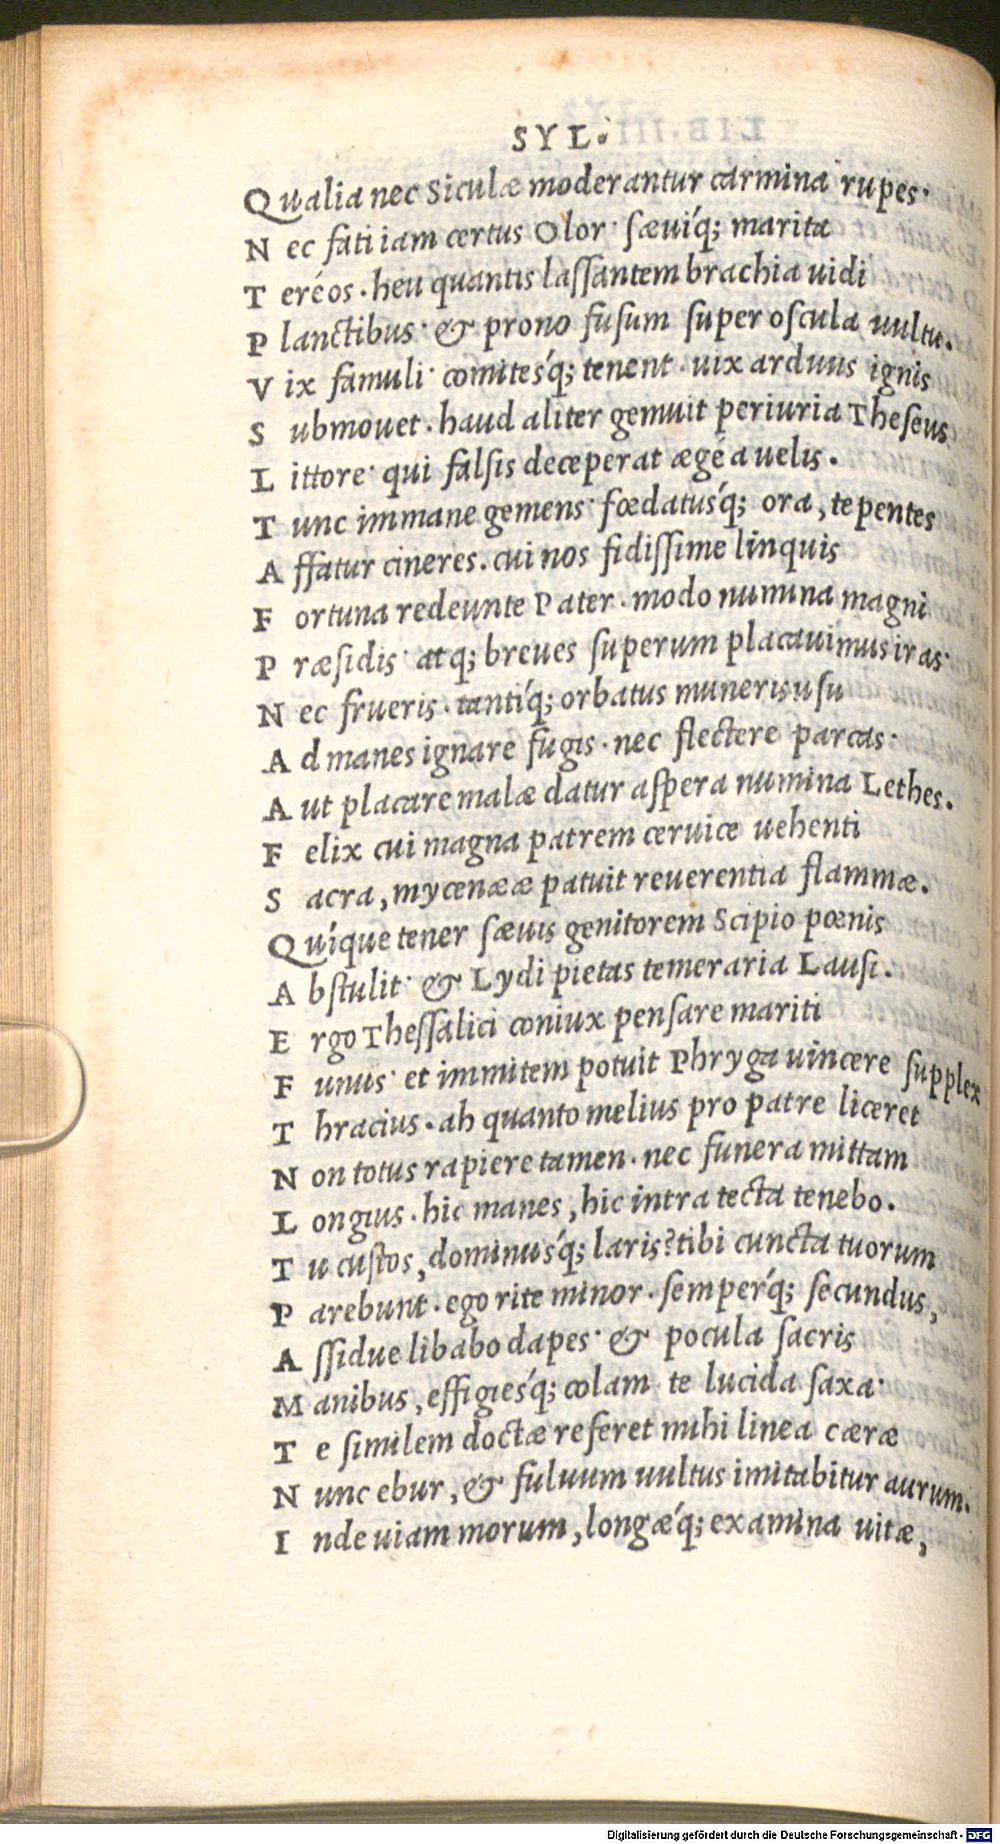 SYL.
Qualia nec Siculæ moderantur carmina rupes·
Nec fati iam certus Olor· sæuíq; marita
Teréos·heu quantis lassantem brachia uidi
Planctibus· & prono fusum super oscula uultu.
Vix famuli· comitesq́; tenent·uix arduus ignis
Submouet·haud aliter gemuit periuria Theseus
Littore· qui falsis deceperat ægéa uelis.
Tunc immane gemens· fœdatusq́; ora, tepentes
Affatur cineres.cui nos fidissime linquis
Fortuna redeunte Pater·modo numina magni
Præsidis· atq; breues superum placauimus iras·
Nec frueris·tantíq; orbatus muneris usu
Ad manes ignare fugis·nec flectere parcas·
Aut placare malæ datur aspera numina Lethes.
Felix cui magna patrem ceruice uehenti
Sacra, mycenææ patuit reuerentia flammæ.
Quíque tener sæuis genitorem Scipio pœnis
Abstulit· & Lydi pietas temeraria Lausi.
Ergo Thessalici coniux pensare mariti
Funus· et immitem potuit Phryga uincere supplex
Thracius·ah quanto melius pro patre liceret
Non totus rapiere tamen·nec funera mittam
Longius·hic manes, hic intra tecta tenebo.
Tu custos, dominusq́; laris?tibi cuncta tuorum
Parebunt·ego rite minor·semperq́; secundus,
Assidue libabo dapes· & pocula sacris
Manibus, effigiesq́; colam te lucida saxa·
Te similem doctæ referet mihi linea cæræ
Nunc ebur, & fuluum uultus imitabitur aurum.
Inde uiam morum, longæq́; examina uitæ,
Digitalisierung gefördert durch die Deutsche Forschungsgemeinschaft - DFG